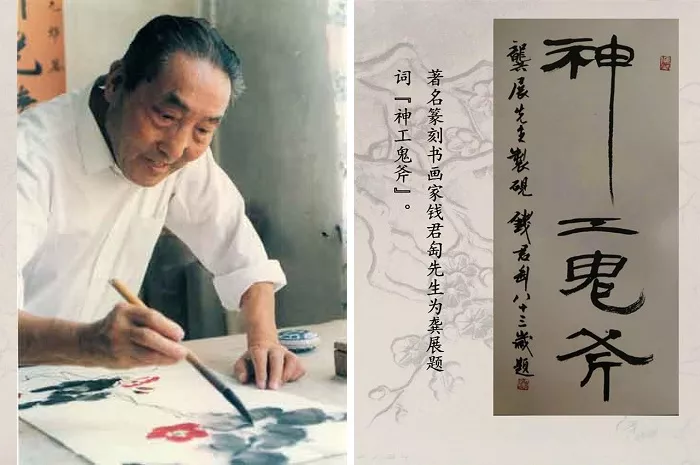 著名篆刻书画家钱君匋先生为龚展题
词『神工鬼斧』。
神工鬼斧
龔展先生製硯 錢君匋八十三歲題